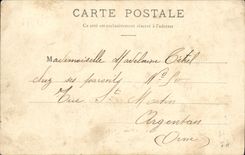 CARTE POSTALE
Ce côté est exclusivement réservé à l'adresse
Mademoiselle Madelaine
chez ses parents
Rue St Martin
Argentan
(Orne)